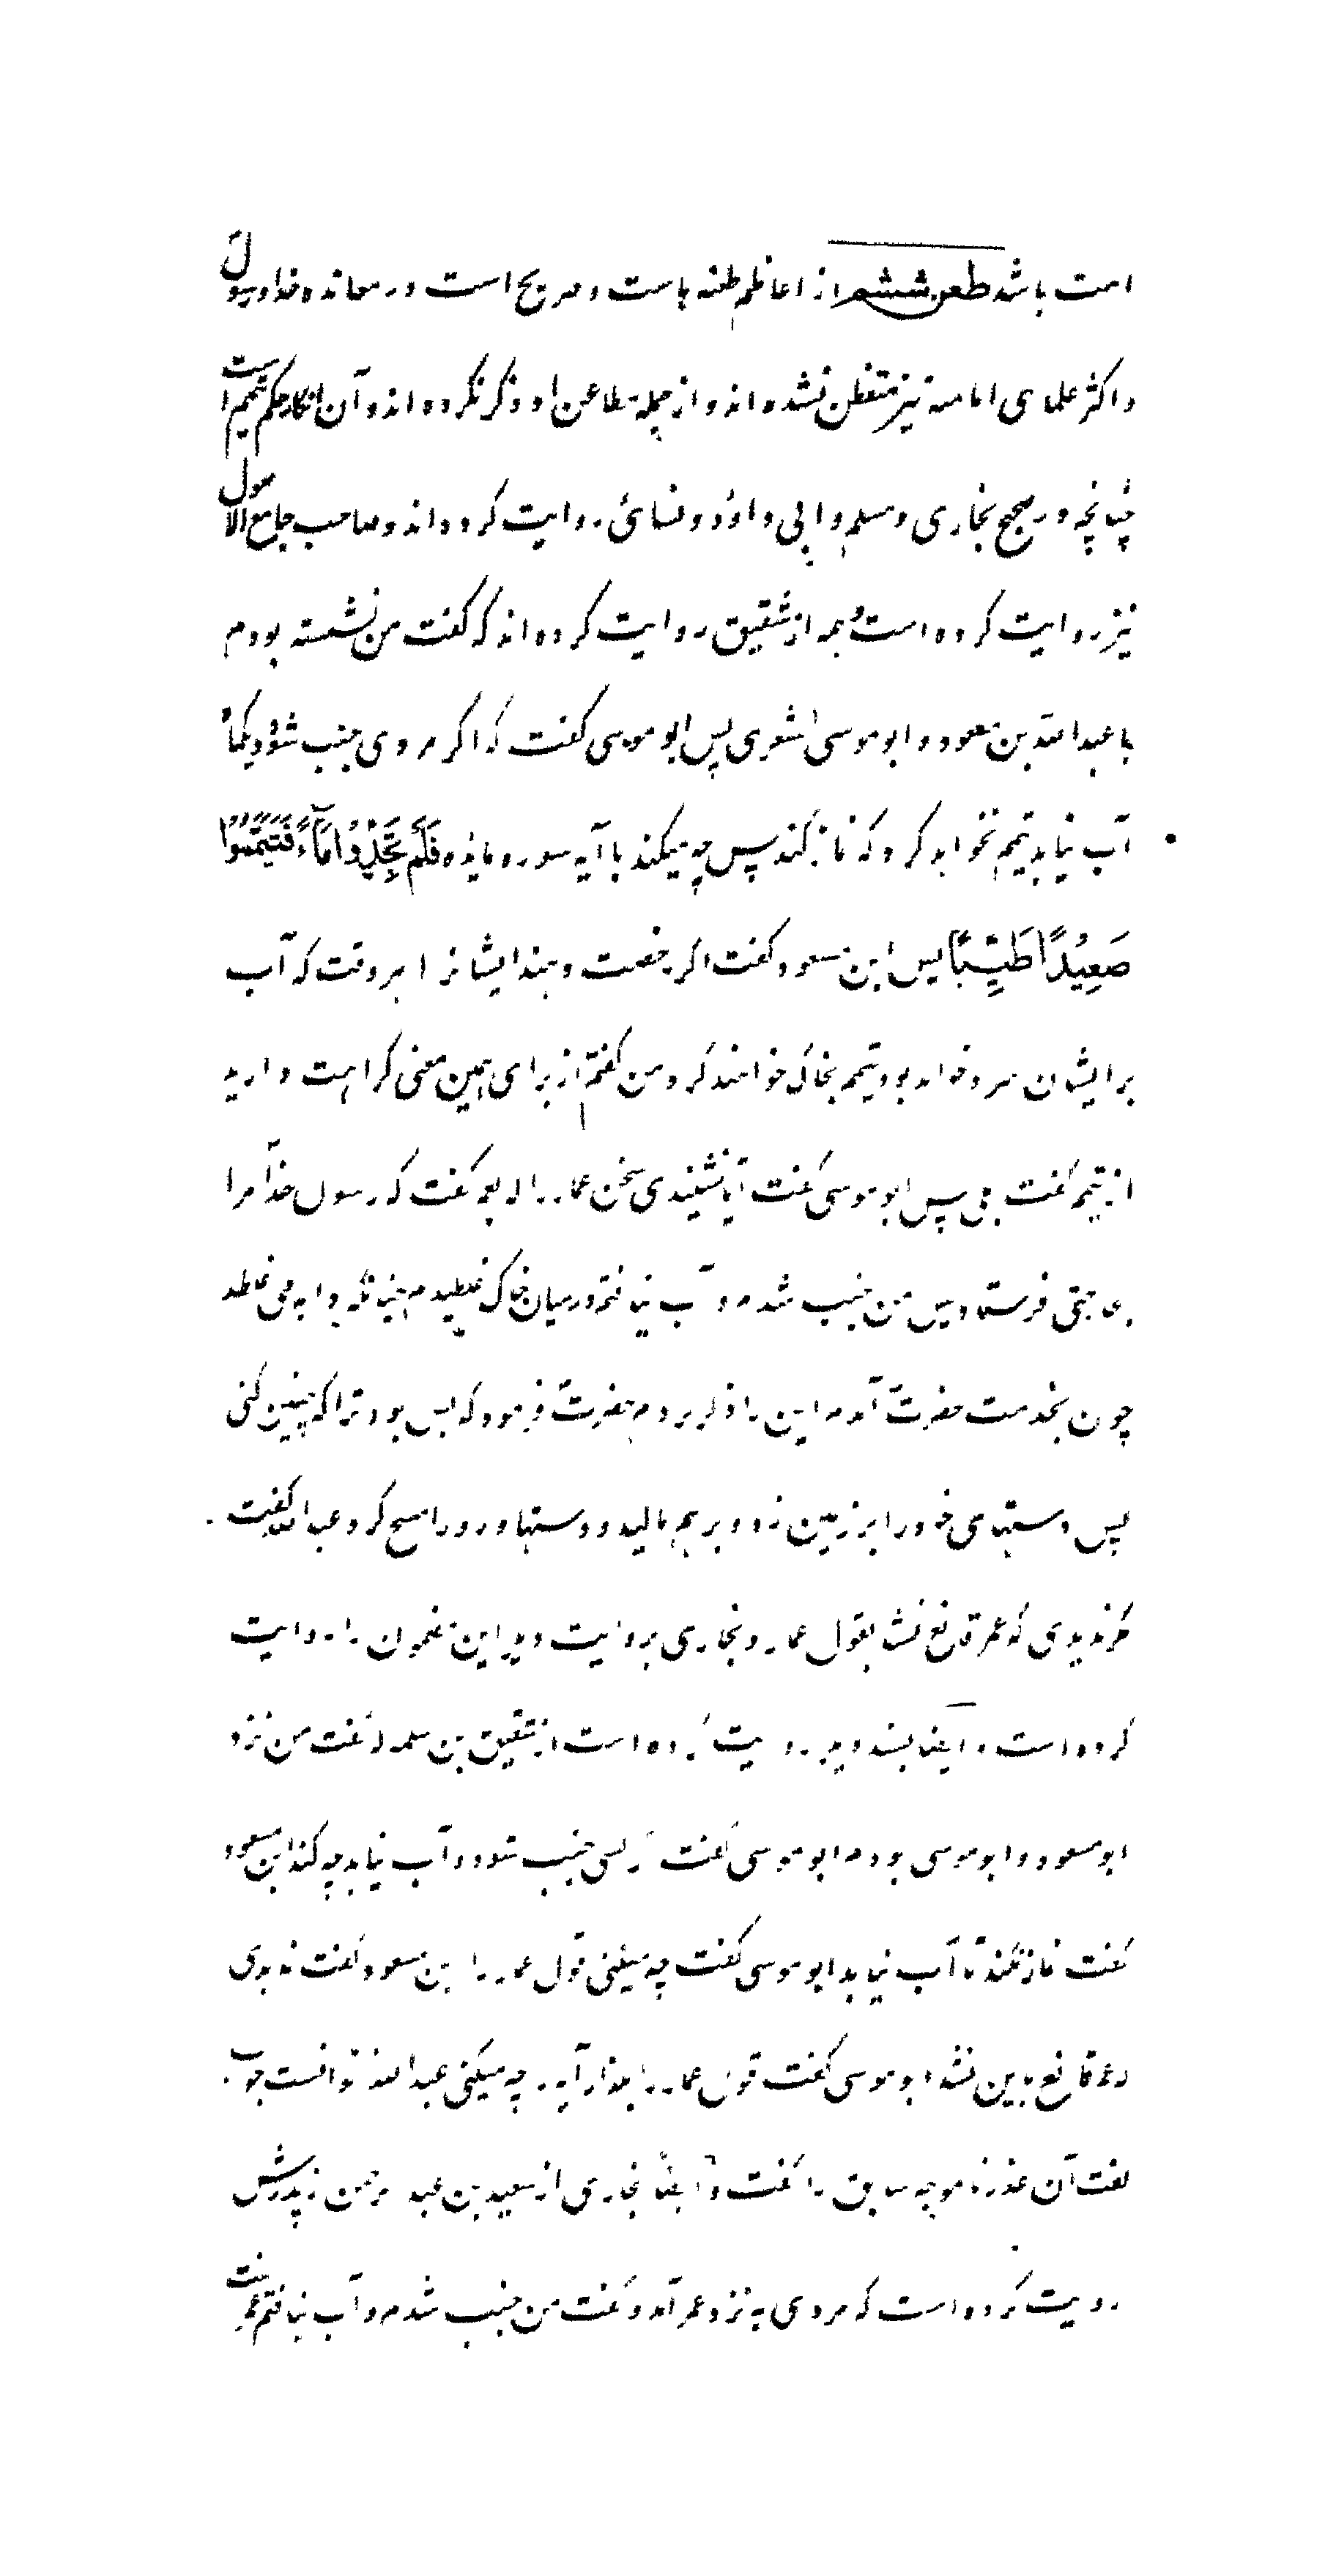 امت باشد طعن ششم از اعاظم طعنه هاست و صریح است در معانده خدا و رسول
و اکثر علمای امامیه نیز متفطن نشده اند و از جمله مطاعن او ذکر نکرده اند و آن انکار حکم تیمم است
چنانچه در صحیح بخاری و مسلم و ابی داؤد و نسائی روایت کرده اند و صاحب جامع الاصول
نیز روایت کرده است و همه از شقیق روایت کرده اند که گفت من نشسته بودم
با عبدالله بن مسعود و ابو موسی اشعری پس ابو موسی گفت که اگر مردی جنب شود و یکماه
آب نیابد تیمم نخواهد کرد که نماز کند پس چه میکند با آیه سوره مایده فَلَمْ تَجِدُوا مَآءً فَتَیَمَّمُوْا
صَعِیْدًا طَیِّبًا پس ابن مسعود گفت اگر رخصت دهند ایشانرا هر وقت که آب
بر ایشان سرد خواهد بود تیمم بخاک خواهند کرد من گفتم از برای همین معنی کراهت دارید
از تیمم گفت بلی پس ابو موسی گفت آیا نشنیدی سخن عمار را که بعمر گفت که رسول خدا مرا
بحاجتی فرستاد پس من جنب شدم و آب نیافتم و در میان خاک غلطیدم چنانکه دابه می غلطد
چون بخدمت حضرت آمدم این را ذکر کردم حضرت فرمود که بس بود ترا که چنین کنی
پس دستهای خود را بر زمین زد و برهم مالید و دستها و رو را مسح کرد عبدالله گفت
مگر ندیدی که عمر قانع نشد بقول عمار و بخاری بروایت دیگر این مضمون را روایت
کرده است و ایضا بسند دیگر روایت کرده است از شقیق بن سلمه که گفت من نزد
ابو مسعود و ابو موسی بودم ابو موسی گفت اگر کسی جنب شود و آب نیابد چه کند ابن مسعود
گفت نماز نکند تا آب نیابد ابو موسی گفت چه میکنی قول عمار را ابن مسعود گفت ندیدی
که عمر قانع باین نشد ابو موسی گفت قول عمار را بگذار آیه را چه میکنی عبدالله نتوانست جواب
گفت آن عذر ناموجه سابق را گفت و ایضاً بخاری از سعید بن عبد الرحمن از پدرش
روایت کرده است که مردی به نزد عمر آمد و گفت من جنب شدم و آب نیافتم عمر گفت